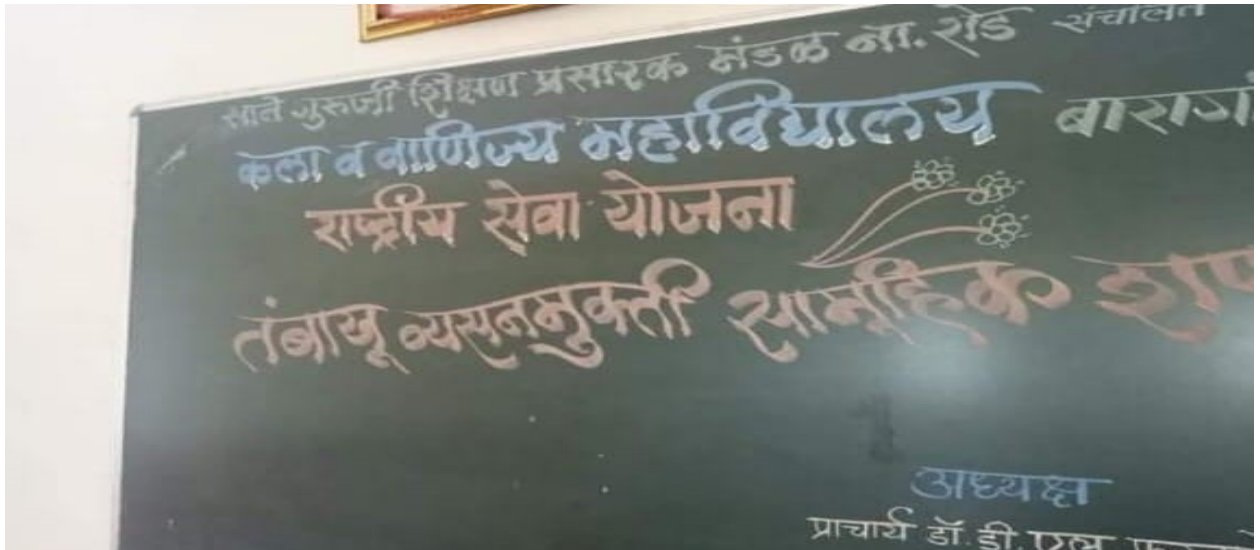 साने गुरुजी शिक्षण प्रसारक मंडळ ना. रोड संचालित
कला व वाणिज्य महाविद्यालय
राष्ट्रीय सेवा योजना
तंबाखू व्यसनमुक्ती सामूहिक
अध्यक्ष
प्राचार्य डॉ. डी. एल.